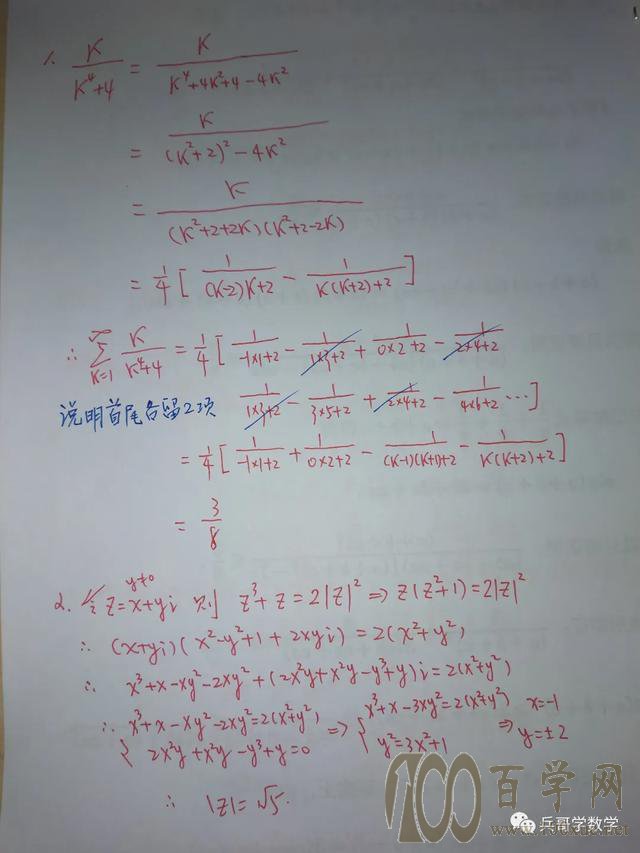 1. K/(K⁴+4) = K/(K⁴+4K²+4-4K²)
= K/((K²+2)²-4K²)
= K/((K²+2+2K)(K²+2-2K))
= 1/4 [ 1/((K-2)K+2) - 1/(K(K+2)+2) ]
∴ ∑_{K=1}^{∞} K/(K⁴+4) = 1/4 [ 1/(-1×1+2) - 1/(1×3+2) + 1/(0×2+2) - 1/(2×4+2)
说明首尾各留2项 1/(1×3+2) - 1/(3×5+2) + 1/(2×4+2) - 1/(4×6+2) … ]
= 1/4 [ 1/(-1×1+2) + 1/(0×2+2) - 1/((K-1)(K+1)+2) - 1/(K(K+2)+2) ]
= 3/8
y≠0
2. 令 z=x+yi 则 z³+z=2|z|² ⇒ z(z²+1)=2|z|²
∴ (x+yi)(x²-y²+1+2xyi)=2(x²+y²)
∴ x³+x-xy²-2xy²+(2x²y+x²y-y³+y)i=2(x²+y²)
∴ { x³+x-xy²-2xy²=2(x²+y²) ⇒ { x³+x-3xy²=2(x²+y²) ⇒ x=-1
2x²y+x²y-y³+y=0 y²=3x²+1 y=±2
∴ |z|=√5.
100百学网
兵哥学数学